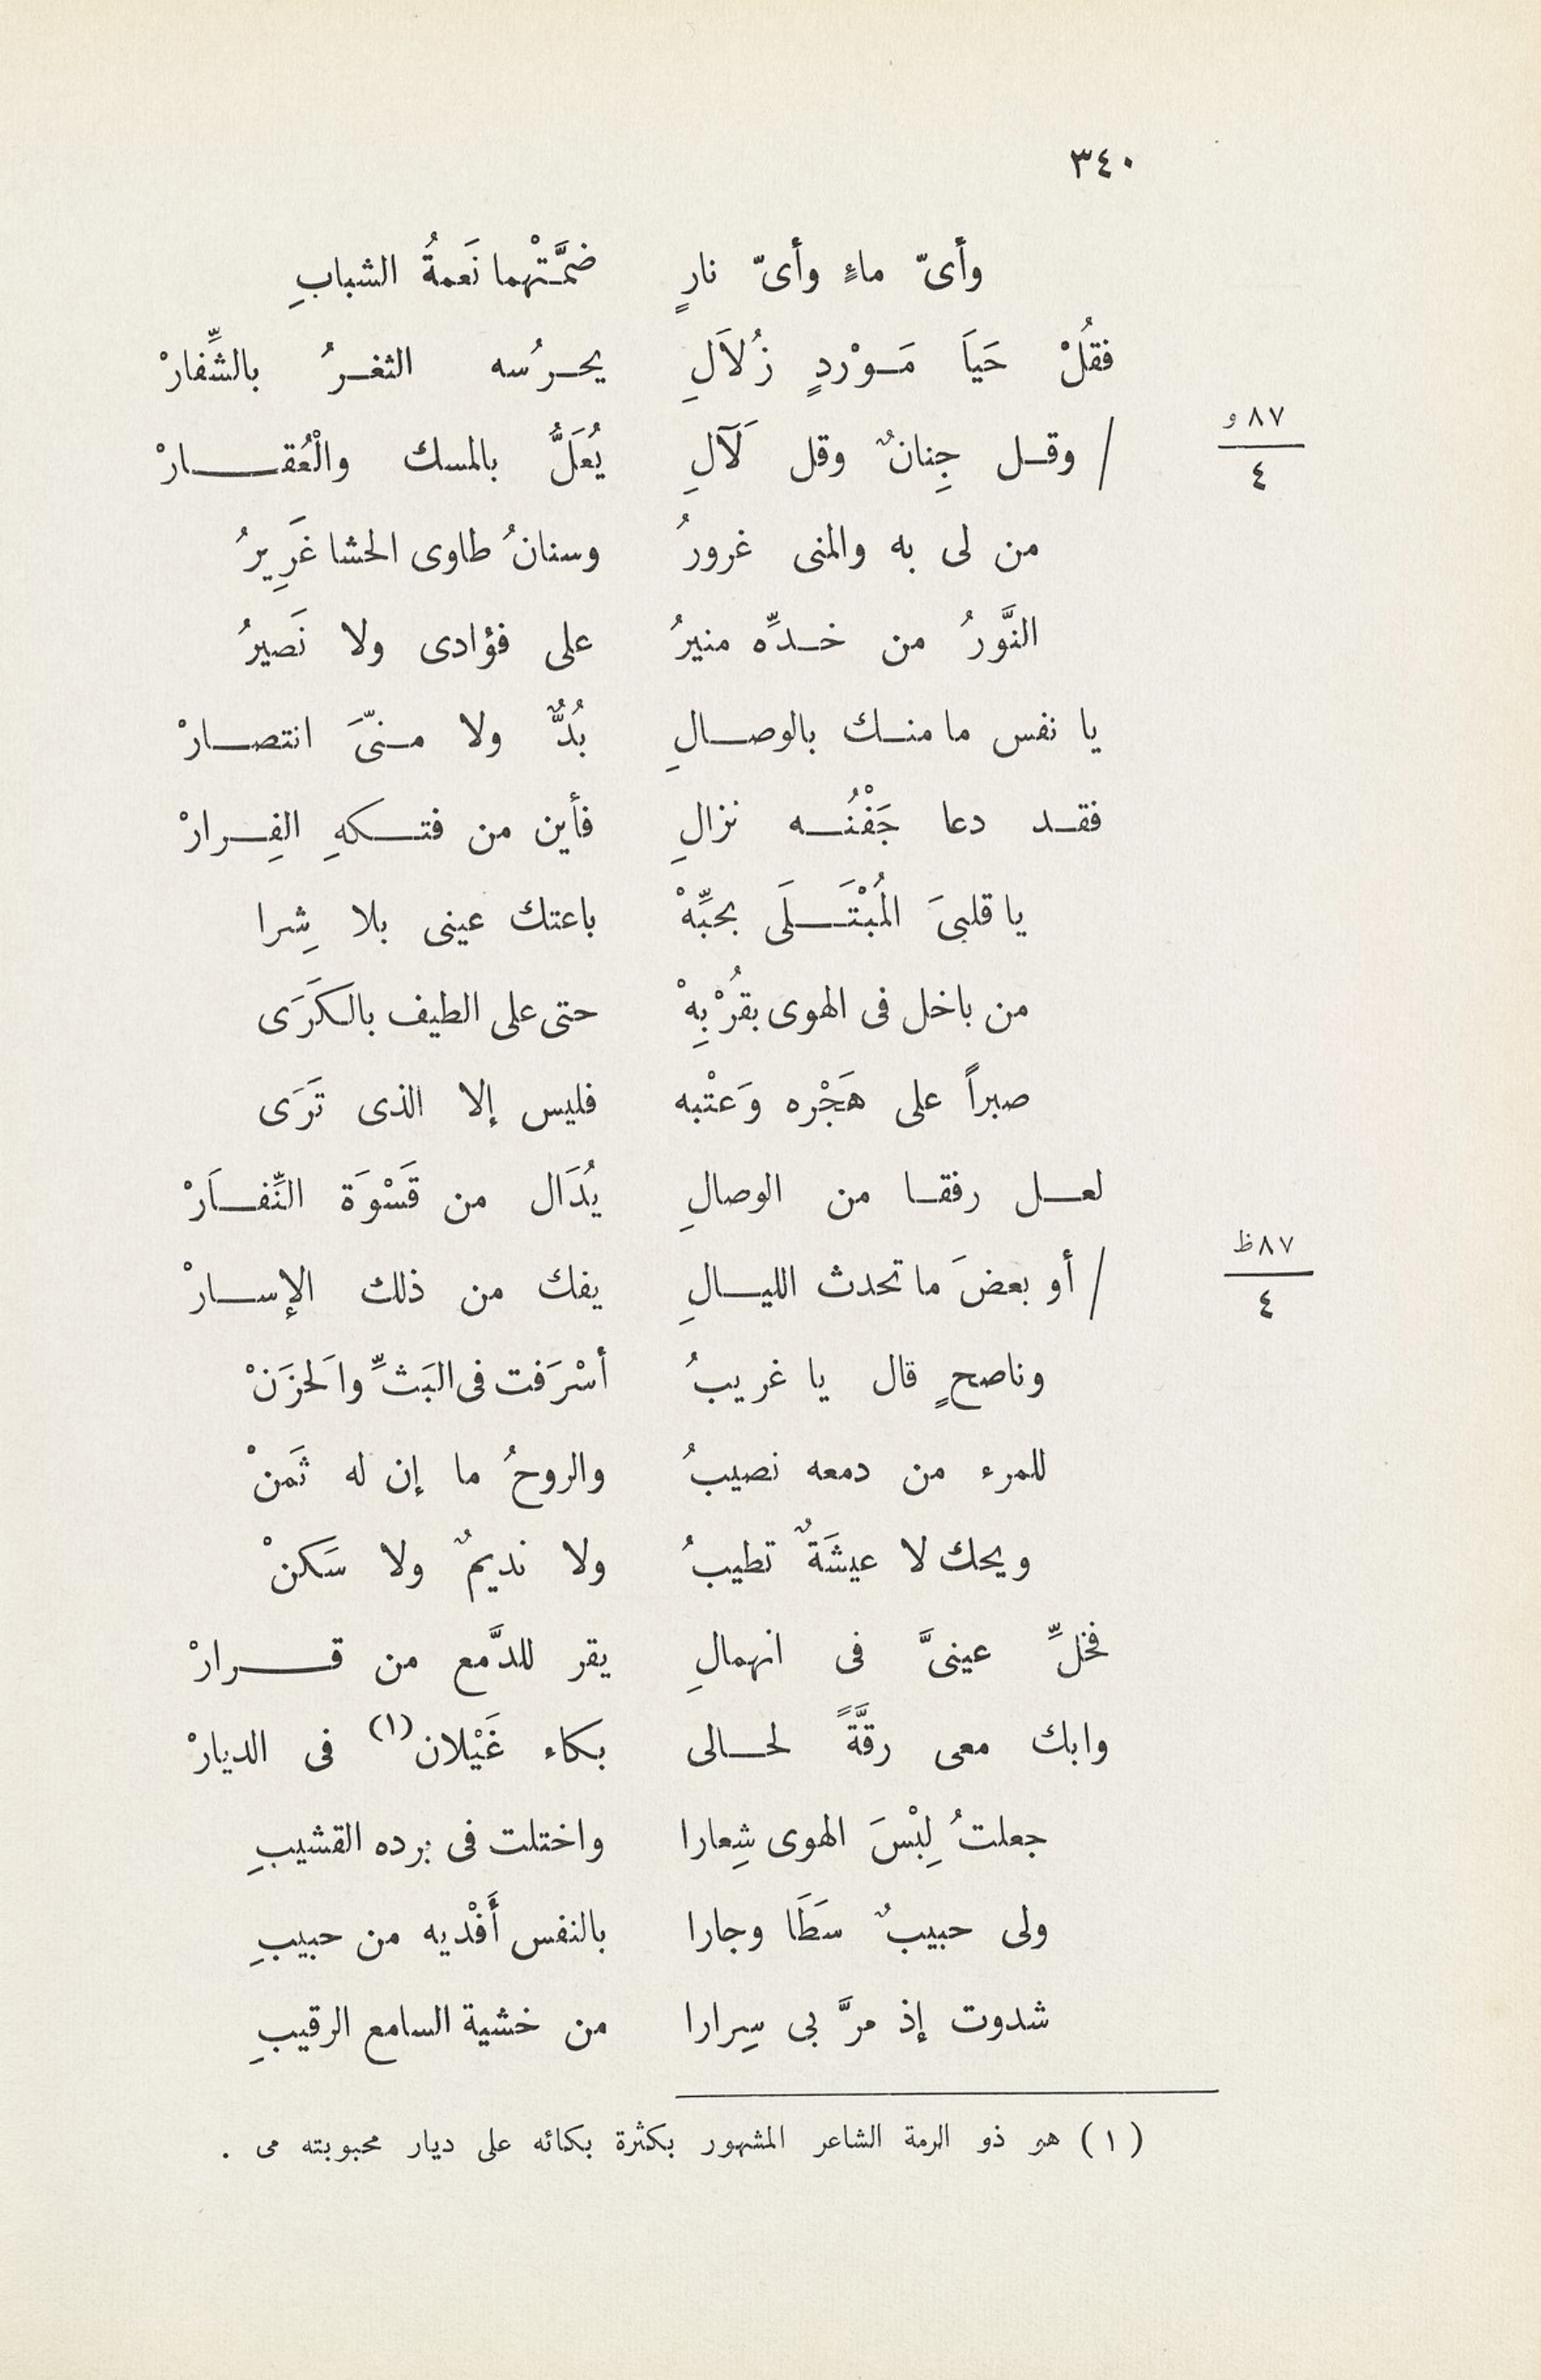 ٣٤٠
وأىّ ماءٍ وأىّ نارٍ ضمَّتْهما نَعمةُ الشبابِ
فقُلْ حَيَا مَوْردٍ زُلاَلِ يحرُسه الثغرُ بالشِّفارْ
٨٧ و
/ وقل جِنانٌ وقل لَآلِ يُعَلُّ بالمسك والْعُقارْ
٤
من لى به والمنى غرورُ وسنانُ طاوى الحشا غَرِيرُ
النَّورُ من خدِّه منيرُ على فؤادى ولا نَصيرُ
يا نفس ما منك بالوصالِ بُدٌّ ولا منىّ انتصارْ
فقد دعا جَفْنُه نزالِ فأين من فتكهِ الفِرارْ
يا قلبىَ المُبْتَلَى بحبِّهْ باعتك عينى بلا شِرا
من باخل فى الهوى بقُرْبِهْ حتى على الطيف بالكَرَى
صبراً على هَجْره وَعتْبه فليس إلا الذى تَرَى
لعل رفقا من الوصالِ يُدَال من قَسْوَة النِّفاَرْ
٨٧ ظ
/ أو بعضَ ما تحدث الليالِ يفك من ذلك الإسارْ
٤
وناصحٍ قال يا غريبُ أسْرَفت فى البَثِّ واَلحزَنْ
للمرء من دمعه نصيبُ والروحُ ما إن له ثَمنْ
ويحك لا عيشَةٌ تطيبُ ولا نديمٌ ولا سَكنْ
فخلِّ عينىَّ فى انهمالِ يقر للدَّمع من قرارْ
وابك معى رقَّةً لحالى بكاء غَيْلان(١) فى الديارْ
جعلتُ لِبْسَ الهوى شِعارا واختلت فى برده القشيبِ
ولى حبيبٌ سَطَا وجارا بالنفس أَفْديه من حبيبِ
شدوت إذ مرَّ بى سِرارا من خشية السامع الرقيبِ
(١) هو ذو الرمة الشاعر المشهور بكثرة بكائه على ديار محبوبته مى .